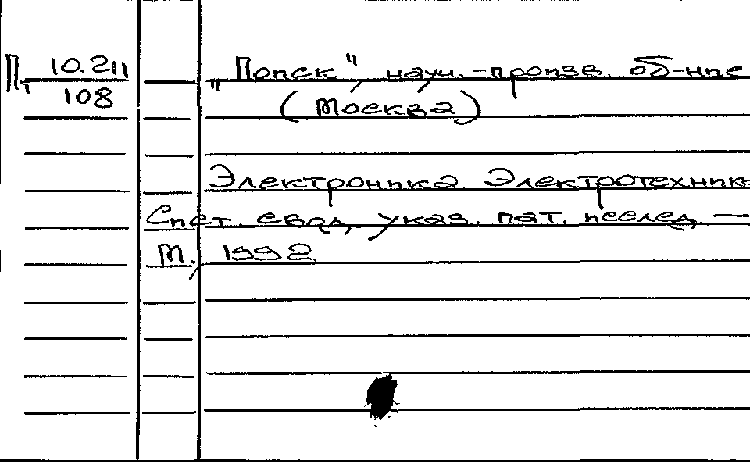 П 10.211
108
„Поиск" науч.-произв. об-ние
(Москва)
Электроника Электротехник
Сист. свод. указ. пат. исслед. —
М., 1992